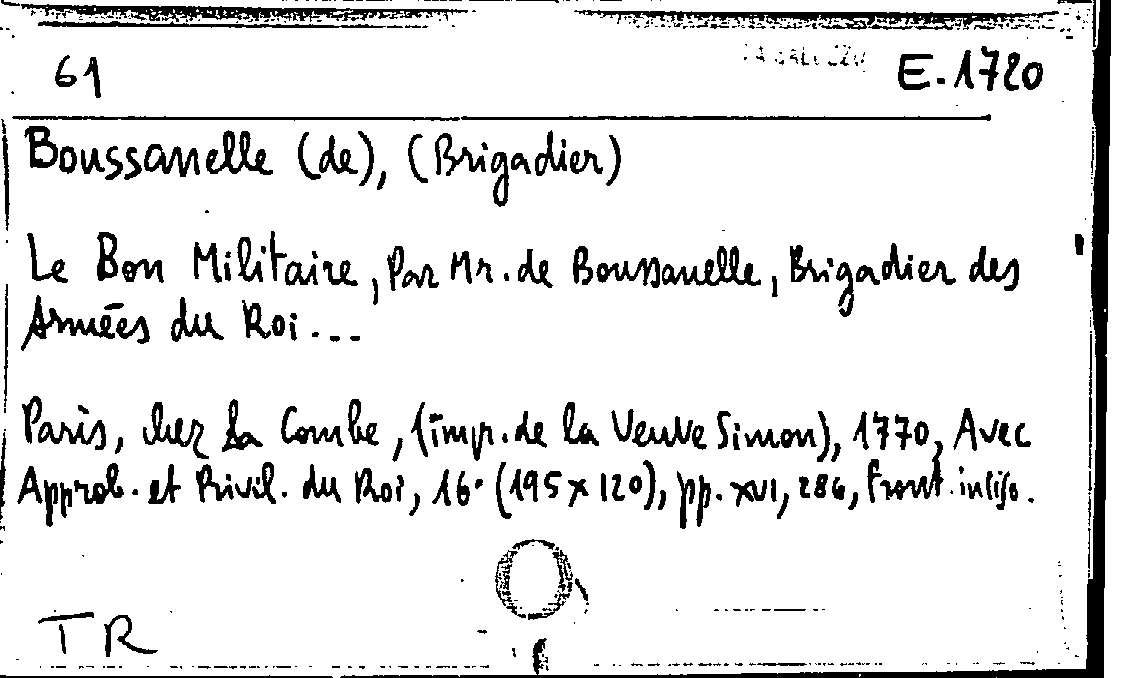 61 E.1720
Boussanelle (de), (Brigadier)
Le Bon Militaire, Par Mr. de Boussanelle, Brigadier des
Armées du Roi...
Paris, chez La Combe, (impr. de la Veuve Simon), 1770, Avec
Approb. et Privil. du Roi, 16° (195 x 120), pp. XVI, 286, front. inciso.
TR